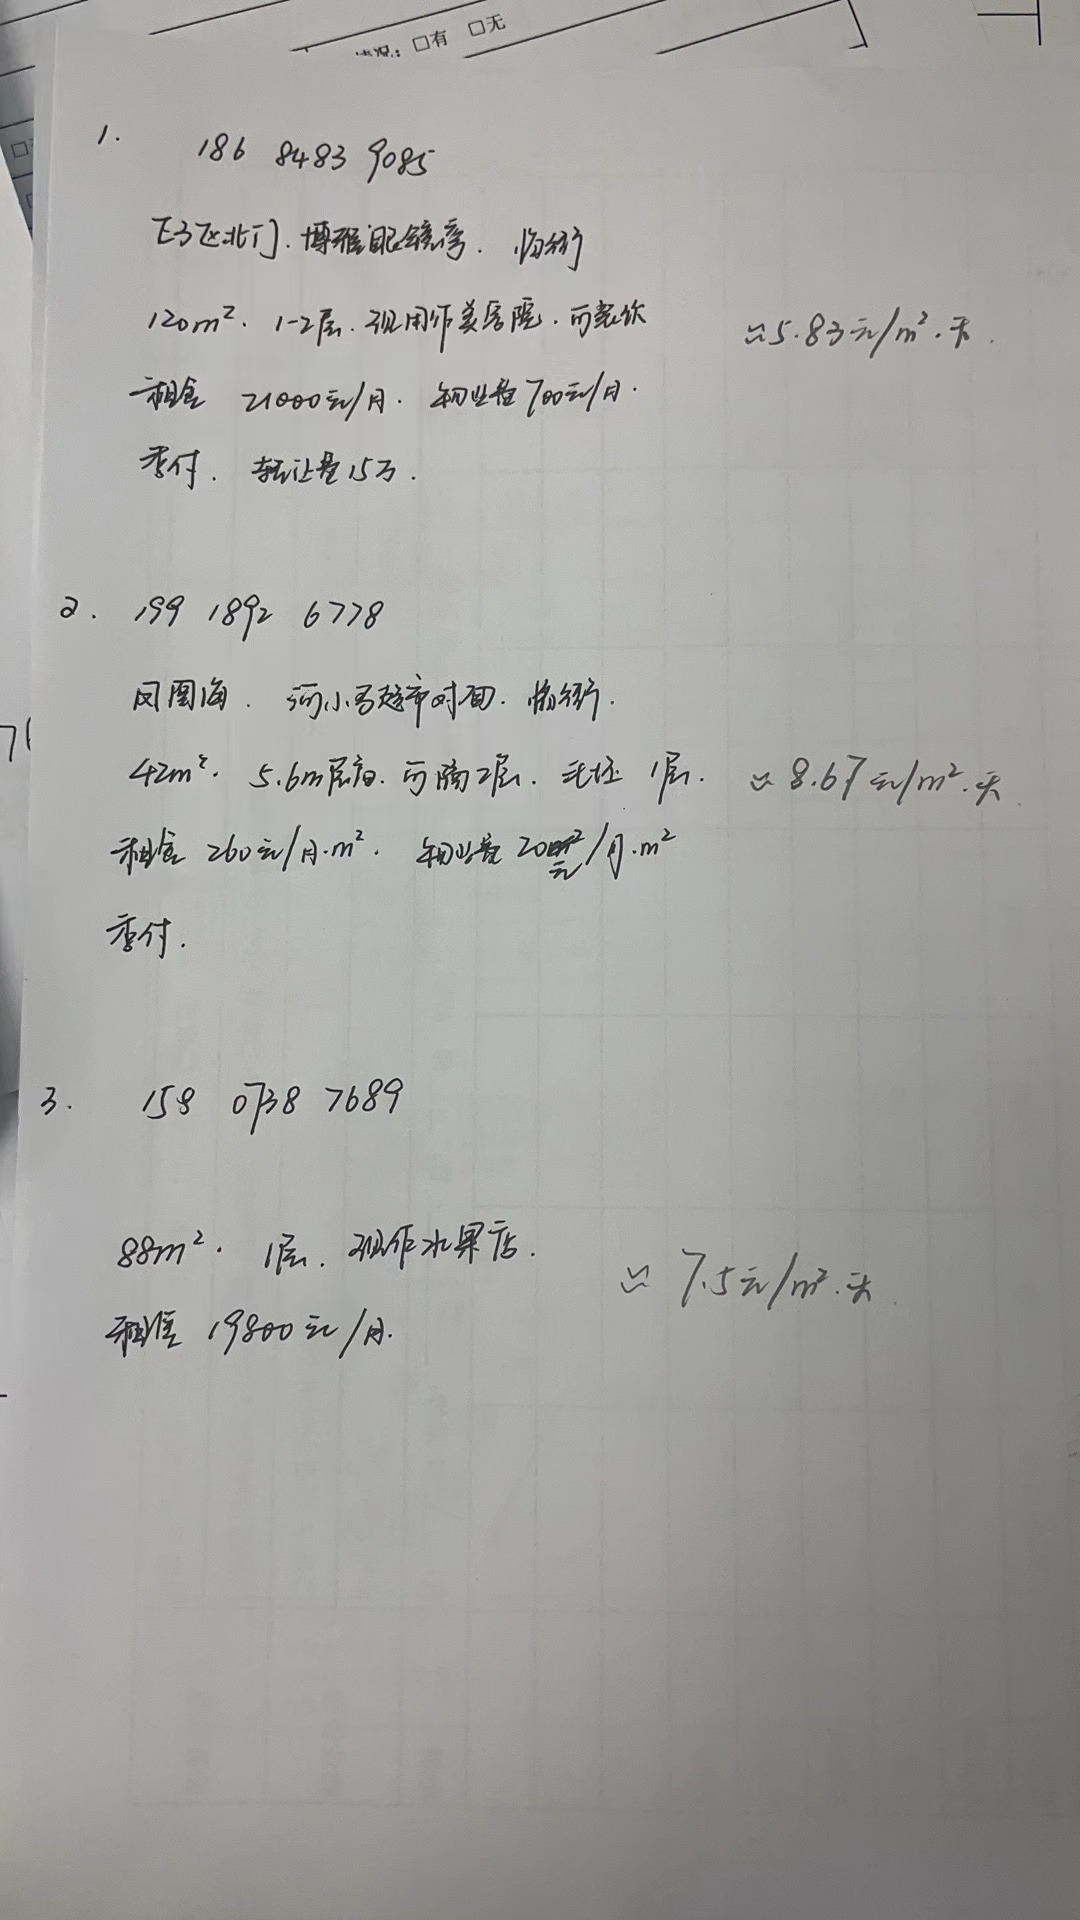 情况: □有 □无
1. 186 8483 9085
北门. 博雅眼镜旁. 临街
120m². 1-2层. 现用作美容院. 可餐饮
≈5.83元/m².天.
租金 21000元/月. 物业费700元/月.
季付. 转让费15万.
2. 199 1892 6778
凤凰海. 河小马超市对面. 临街.
42m². 5.6m层高. 可隔2层. 毛坯 1层.
≈8.67元/m².天
租金 260元/月.m². 物业费 20元/月.m²
季付.
3. 158 0738 7689
88m². 1层. 现作水果店.
≈ 7.5元/m².天.
租金 19800元/月.